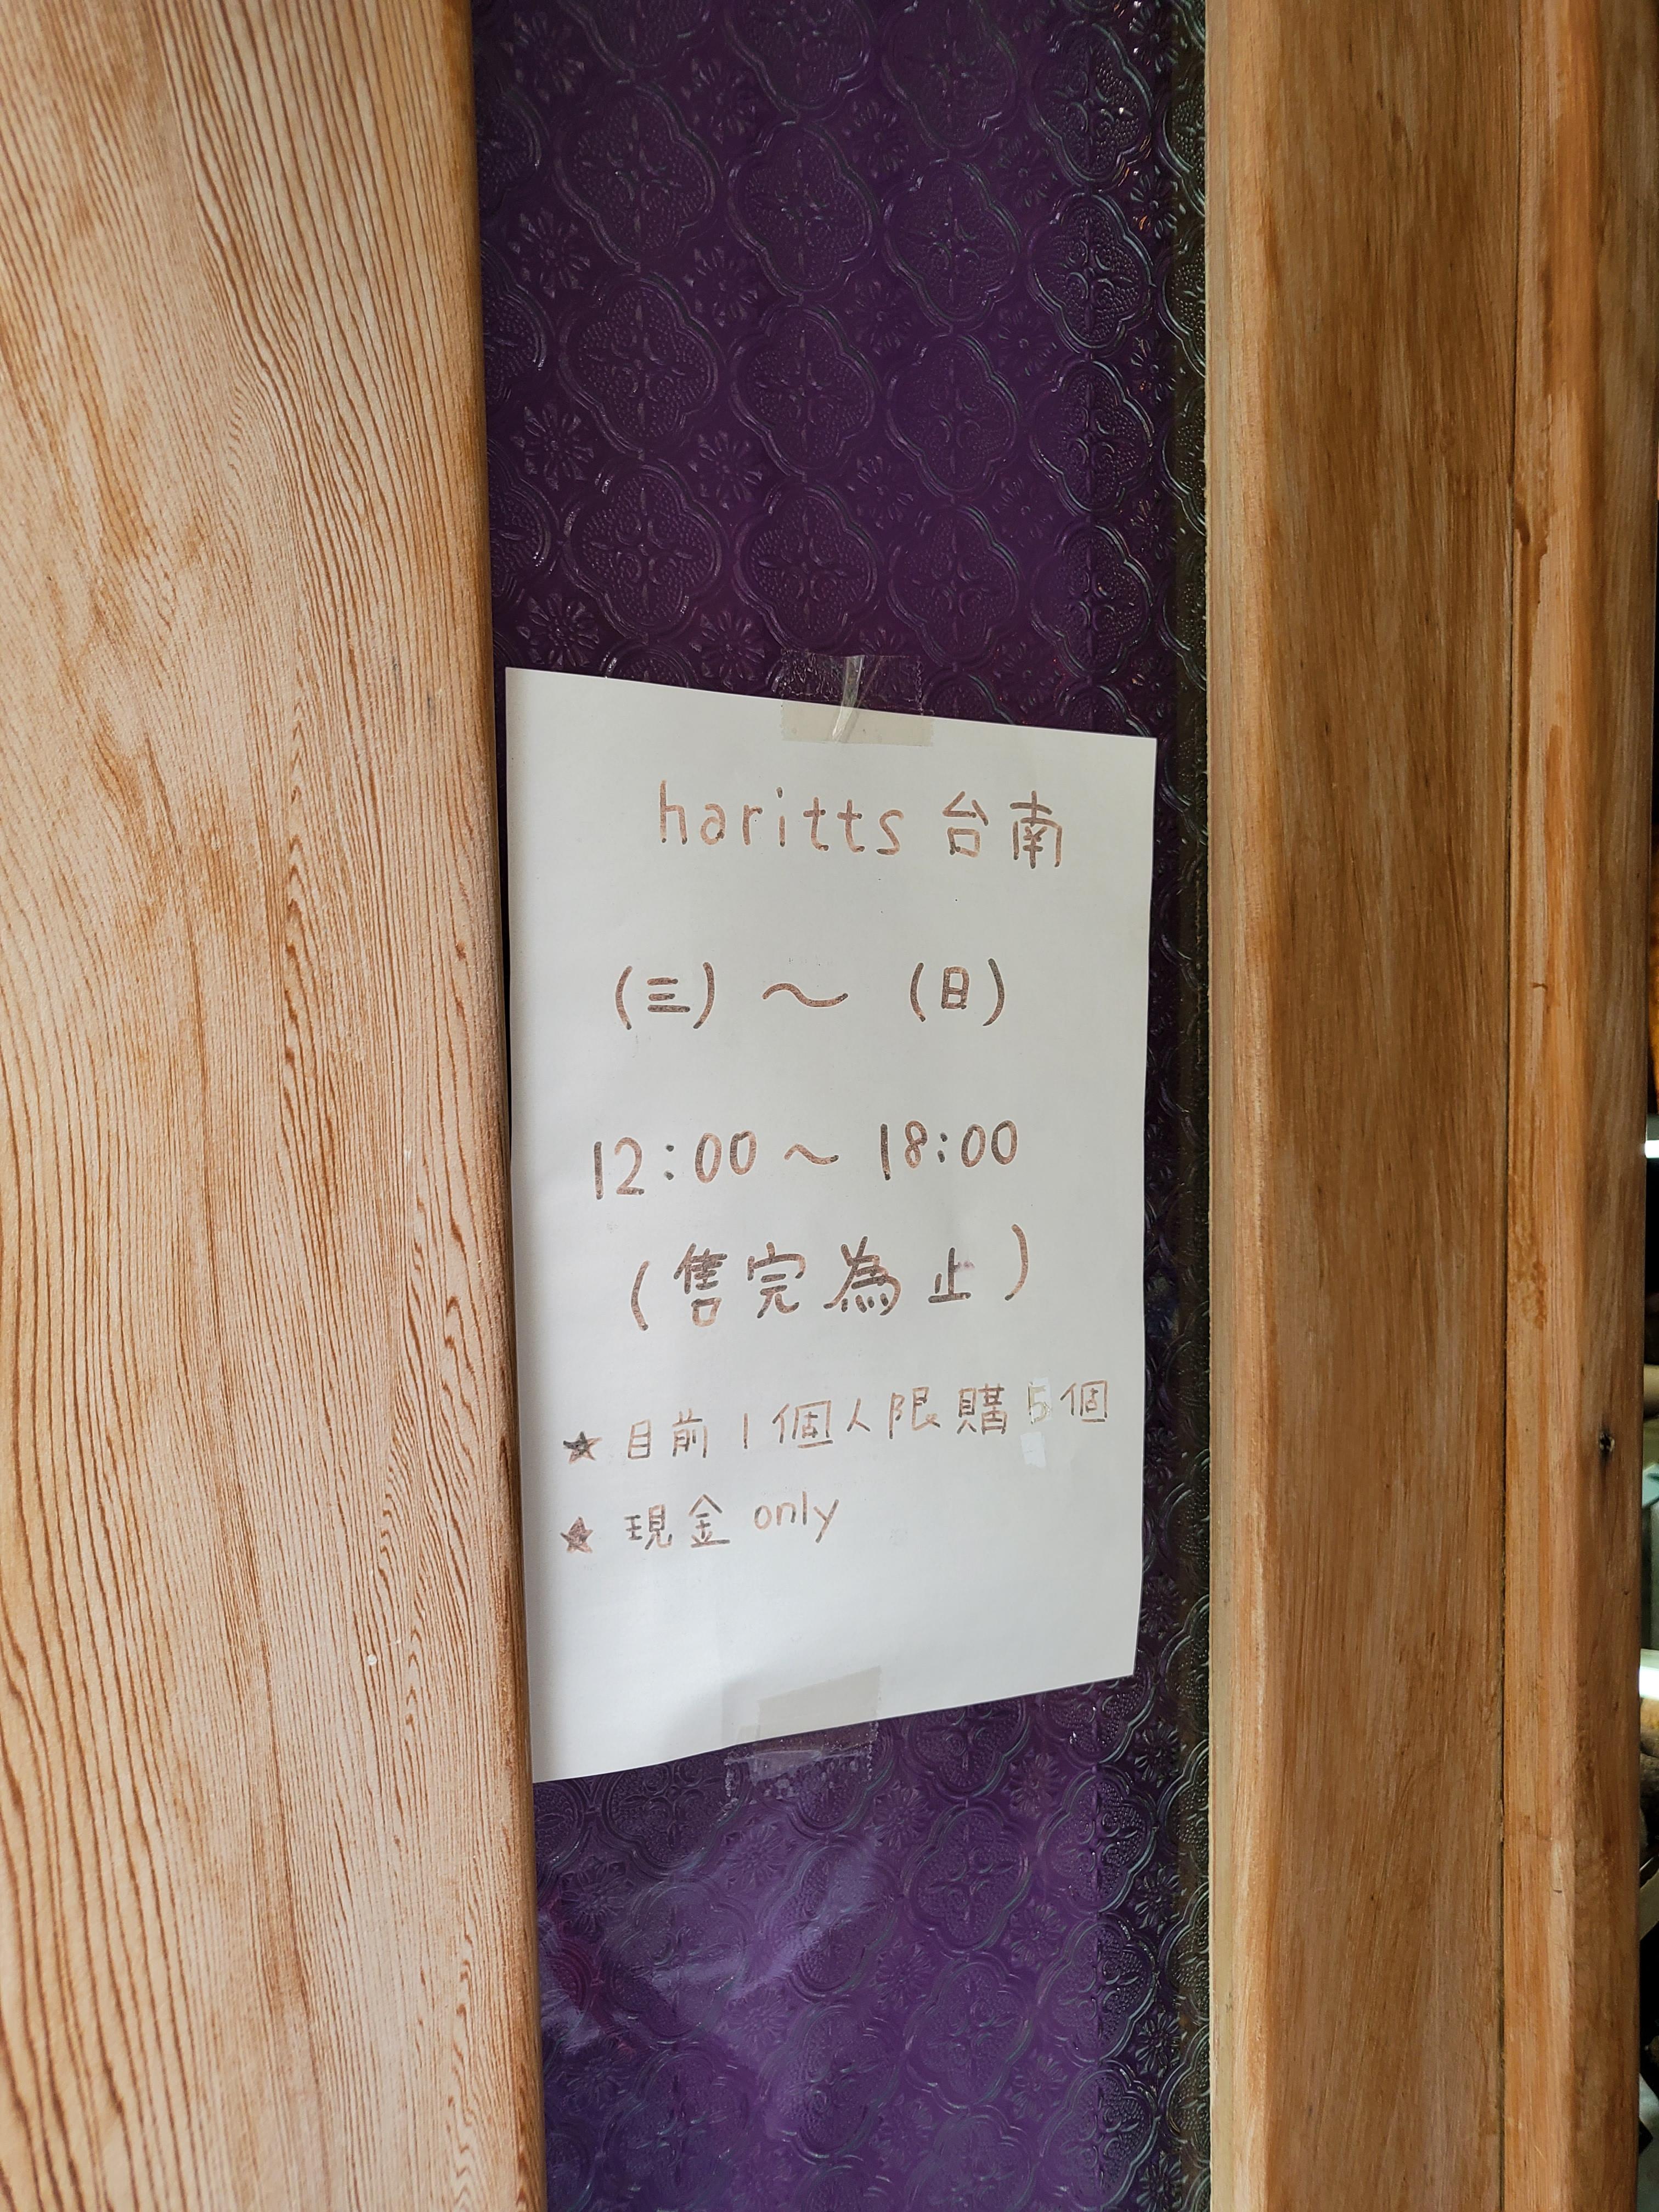 haritts 台南
(三) ～ (日)
12:00 ～ 18:00
(售完為止)
★ 目前 1 個人限購 5 個
★ 現金 only